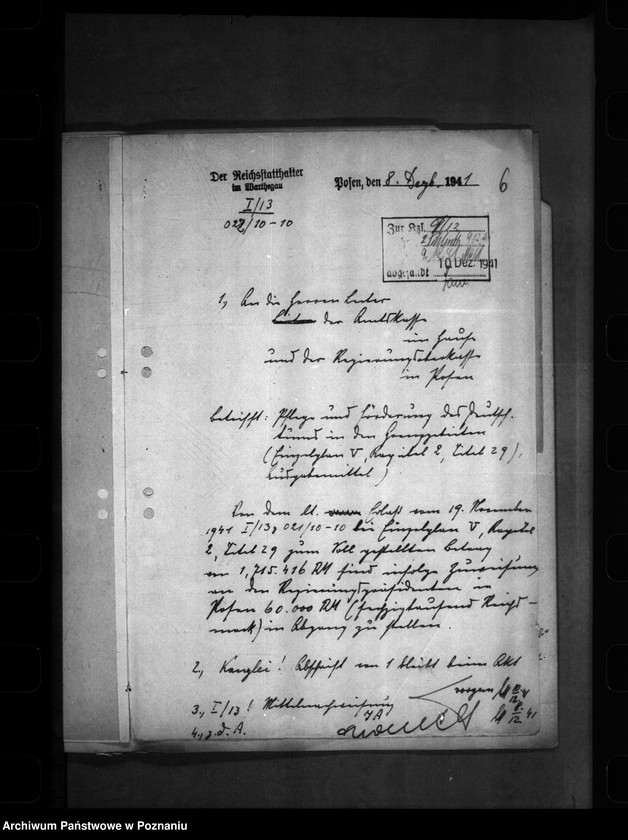 Der Reichsstatthalter
im Warthegau
I/13
021/10-10
Posen, den 8. Dezb. 1941
6
Zur Kzl. 9/12
10. Dez. 1941
abgesandt
1, An die Herren Leiter
der Amtskasse
im Hause
und der Regierungsoberkasse
in Posen
Betrifft: Pflege und Förderung des Deutsch-
tums in den Grenzgebieten
(Einzelplan V, Kapitel 2, Titel 29),
Ausgabemittel)
Von dem lt. Erlaß vom 19. November
1941 I/13, 021/10-10 bei Einzelplan V, Kapitel
2, Titel 29 zum Soll gestellten Betrag
von 1,715.416 RM sind infolge Zuweisung
an den Regierungspräsidenten in
Posen 60.000 RM (sechzigtausend Reichs-
mark) in Abgang zu stellen.
2, Kanzlei! Abschrift von 1 bleibt beim Akt
3., I/13! Mittelnachweisung
4., z. d. A.
I A
Archiwum Państwowe w Poznaniu